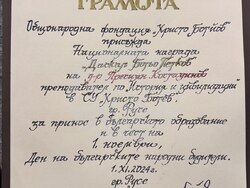 ГРАМОТА
Общонародна фондация „Христо Ботйов“
присъжда
Националната награда
„Даскал Ботьо Петков“
на д-р Пресиян Костадинов
преподавател по История и цивилизации
в СУ „Христо Ботев“,
гр. Русе
за принос в българското образование
и в чест на
1 ноември,
Ден на българските народни будители.
1.XI.2024г.
гр. Русе